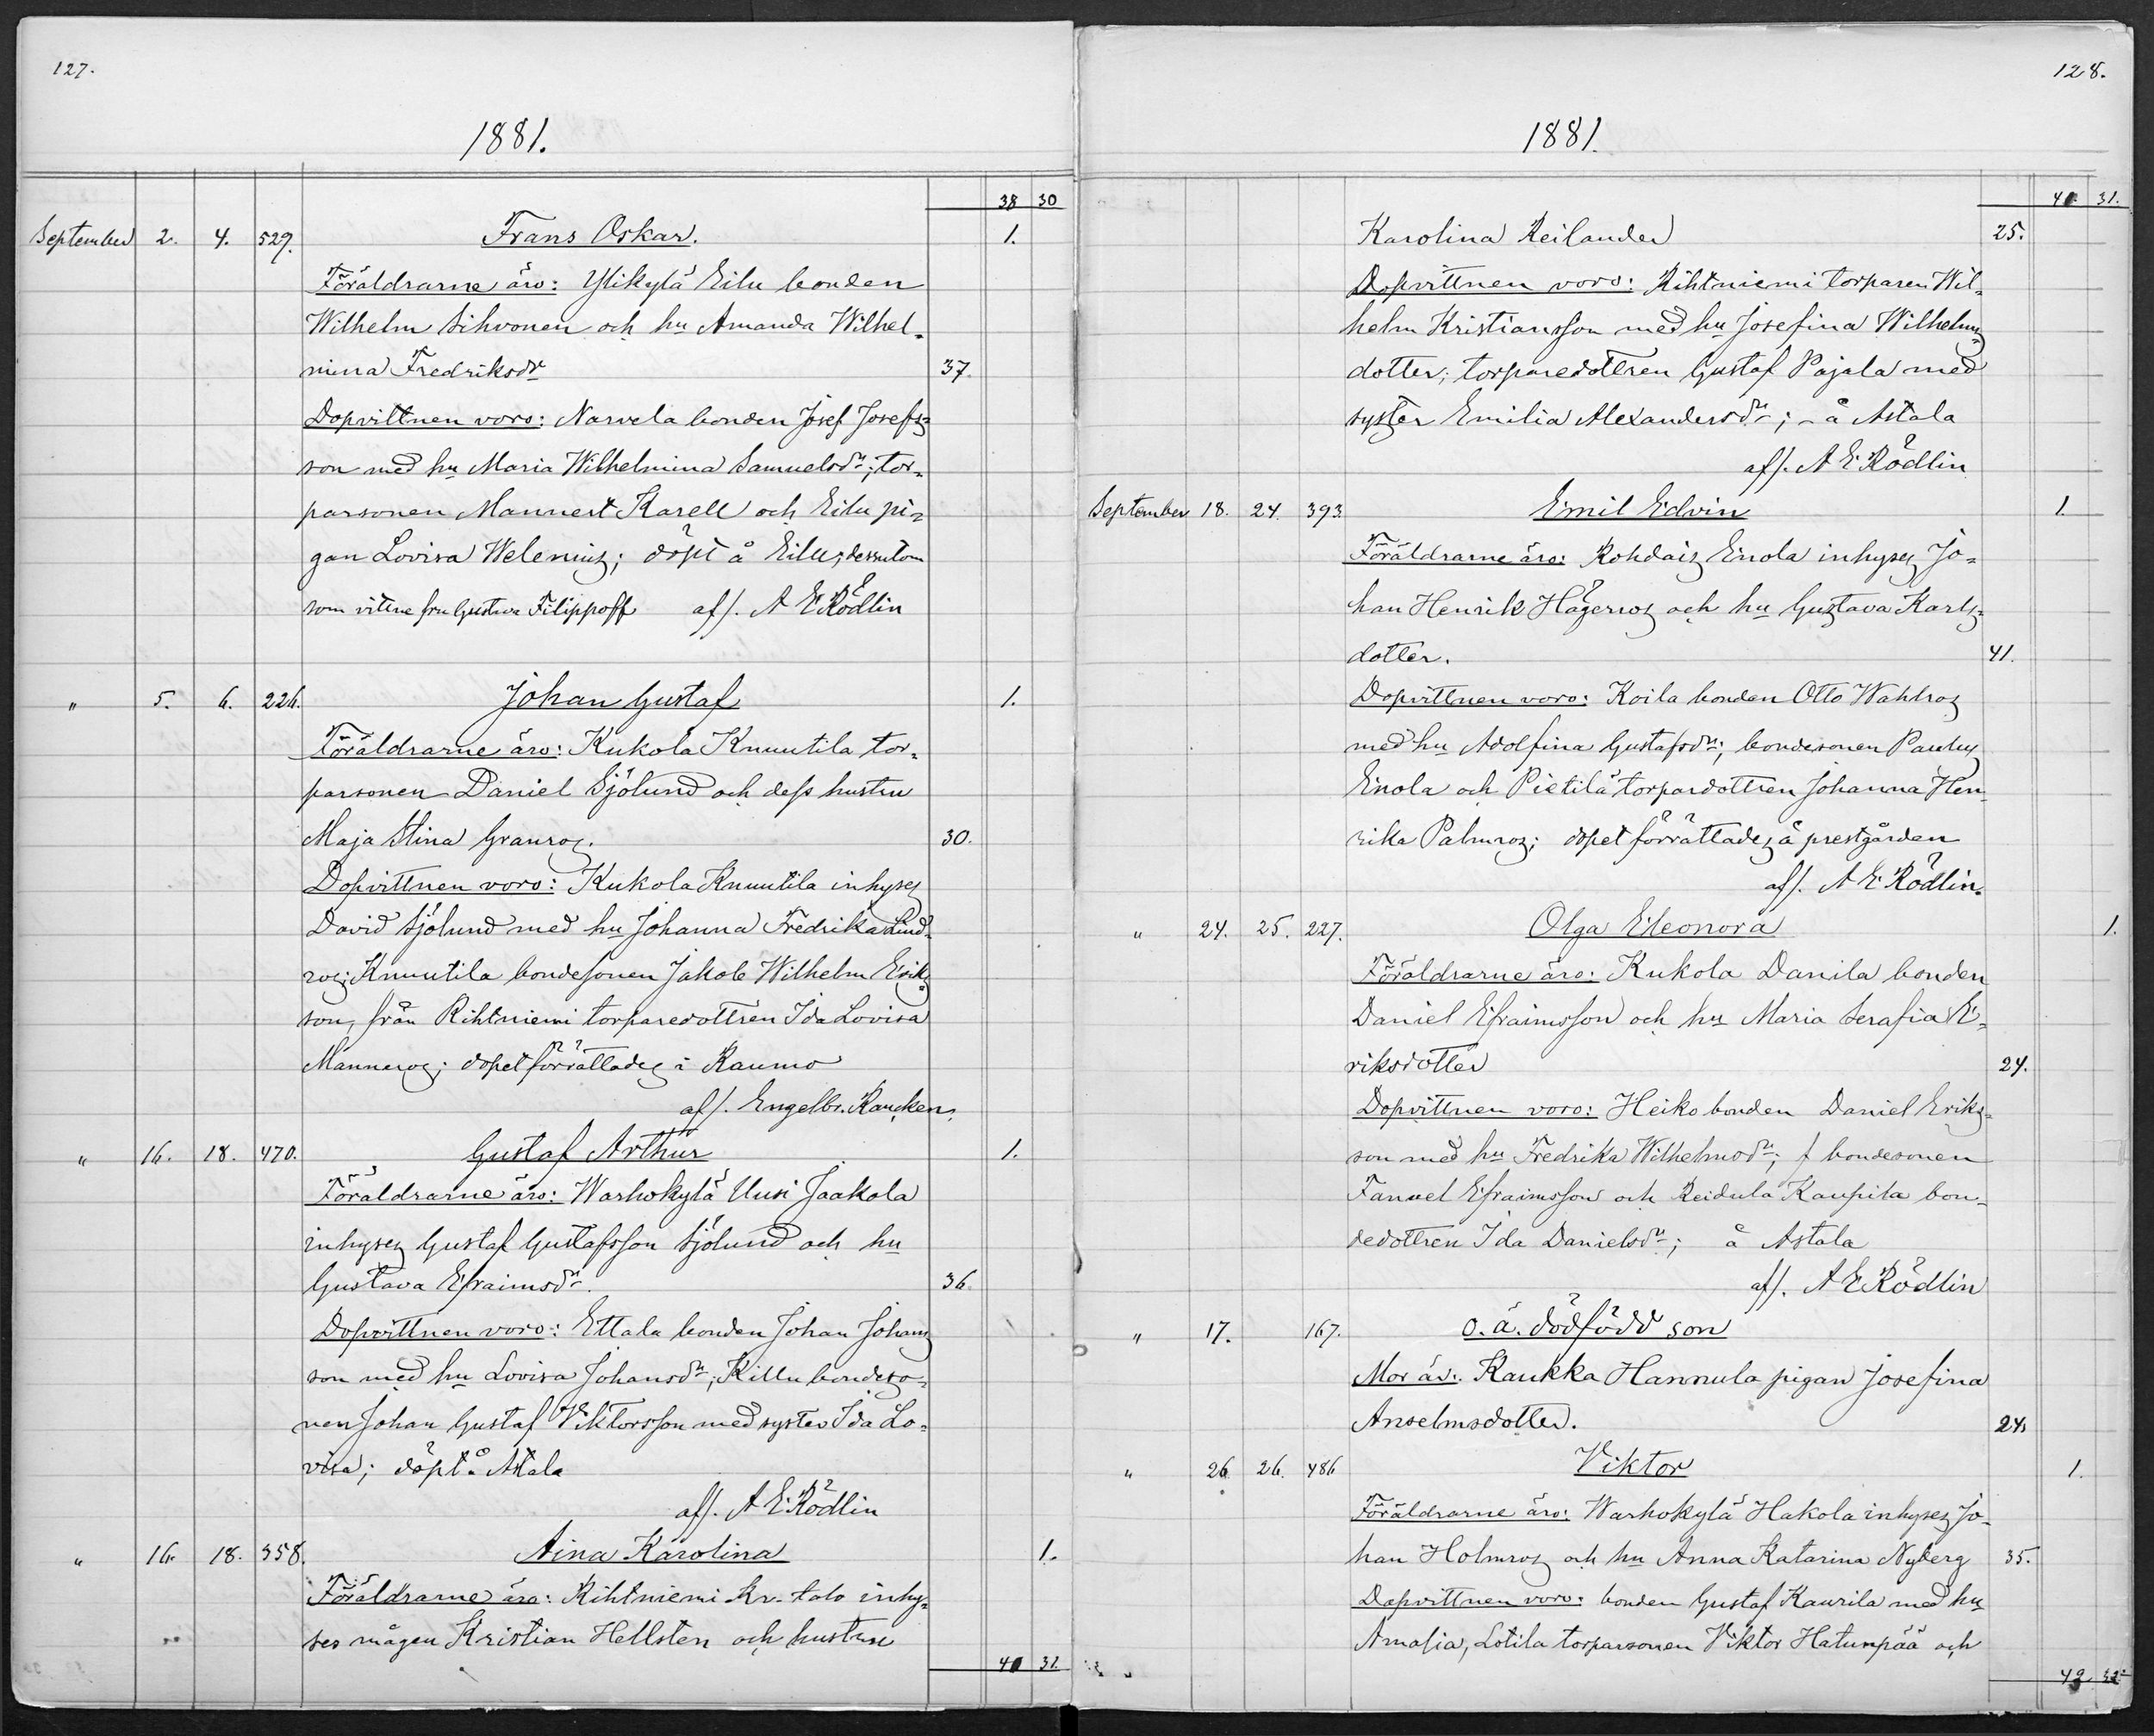 127.
1881.
38 30
September 2. 4. 529. Frans Oskar. 1.
Föräldrarne äro: Ylikylä Eilu bonden
Wilhelm Sihvonen och hu Amanda Wilhel-
mina Fredriksdr 37.
Dopvittnen voro: Narvela bonden Josef Josefs-
son med hu Maria Wilhelmina Samuelsdr; tor-
parsonen Mannert Karell och Eilu pi-
gan Lovisa Welenius; döpt å Eilu, dessutom
som vittne fru Gustava Filippoff aff. A E Rödlin
" 5. 6. 226. Johan Gustaf 1.
Föräldrarne äro: Kukola Knuutila tor-
parsonen Daniel Sjölund och dess hustru
Maja Stina Granros. 30.
Dopvittnen voro: Kukola Knuutila inhyses
David Sjölund med hu Johanna Fredrika Lind-
ros; Knuutila bondesonen Jakob Wilhelm Eriks-
son, från Rihtniemi torparedottren Ida Lovisa
Manneros; dopet förrättades i Raumo
aff. Engelbr. Rancken.
" 16. 18. 470. Gustaf Arthur 1.
Föräldrarne äro: Warhokylä Uusi Jaakola
inhyses Gustaf Gustafsson Sjölund och hu
Gustava Efraimsdr. 36.
Dopvittnen voro: Ettala bonden Johan Johans
son med hu Lovisa Johansdr; Killu bondeso-
nen Johan Gustaf Viktorsson med syster Ida Lo-
visa; döpt å Astala
aff. A E Rödlin
" 16. 18. 358. Aina Karolina 1.
Föräldrarne äro: Rihtniemi Kr. talo inhy-
ses mågen Kristian Hellsten och hustru
40 31.
128.
1881.
40. 31.
Karolina Reilander 25.
Dopvittnen voro: Rihtniemi torparen Wil-
helm Kristiansson med hu Josefina Wilhelms-
dotter; torparedottren Gustaf Pajala med
syster Emilia Alexandersdr; - å Astala
aff. A E Rödlin
September 18. 24. 393. Emil Edvin 1.
Föräldrarne äro: Rohdais Einola inhyses Jo-
han Henrik Hägerros och hu Gustava Karls-
dotter. 41.
Dopvittnen voro: Koila bonden Otto Wahlros
med hu Adolfina Gustafsdr; bondesonen Paulus
Einola och Pietilä torpardottren Johanna Hen-
rika Palmros; dopet förrättades å prestgården
aff. A E Rödlin.
" 24. 25. 227. Olga Eleonora 1.
Föräldrarne äro: Kukola Danila bonden
Daniel Efraimsson och hu Maria Serafia E-
riksdotter 24.
Dopvittnen voro: Heiko bonden Daniel Eriks-
son med hu Fredrika Wilhelmsdr; f bondesonen
Fanuel Efraimsson och Reidula Kaupila bon-
dedottren Ida Danielsdr; å Astala
aff. A E Rödlin
" 17. 167. o. ä. dödfödd son
Mor är: Kaukka Hannula pigan Josefina
Anselmsdotter. 24.
" 26. 26. 486 Viktor 1.
Föräldrarne äro: Warhokylä Hakola inhyses Jo-
han Holmros och hu Anna Katarina Nyberg 35.
Dopvittnen voro: bonden Gustaf Kaurila med hu
Amalia, Lotila torparsonen Viktor Hatunpää och
42 32.